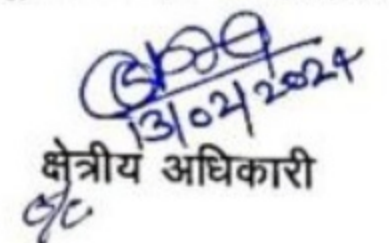 13/02/2024
क्षेत्रीय अधिकारी